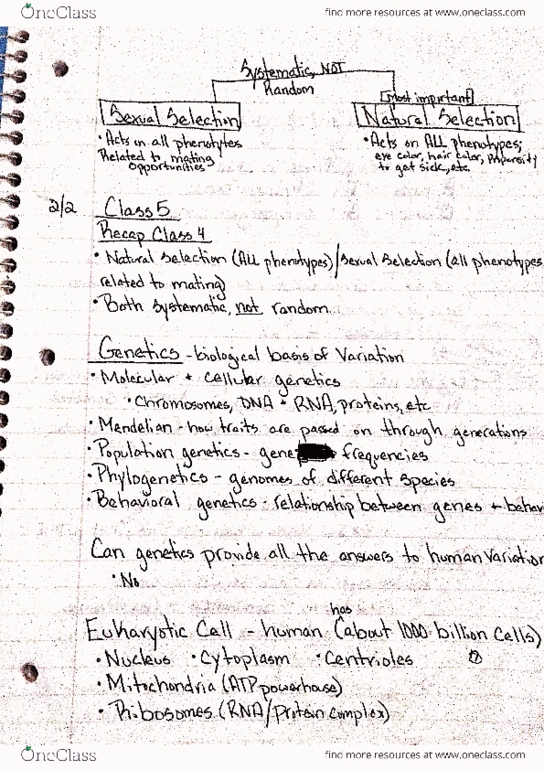 OneClass
find more resources at www.oneclass.com
Systematic, NOT
Random
[Most important]
Sexual Selection
Natural Selection
• Acts in all phenotytes
Related to mating
opportunities
• Acts on ALL phenotypes;
eye color, hair color, propensity
to get sick, etc
2/2 Class 5
Recap Class 4
• Natural Selection (ALL phenotypes)/Sexual Selection (all phenotypes
related to mating)
• Both systematic, not random
Genetics - biological basis of Variation
• Molecular + cellular genetics
• Chromosomes, DNA + RNA, proteins, etc
• Mendelian - how traits are passed on through generations
• Population genetics - gene frequencies
• Phylogenetics - genomes of different species
• Behavioral genetics - relationship between genes + behavi
Can genetics provide all the answers to human variation
• No
has
Eukaryotic Cell - human (about 1000 billion cells)
• Nucleus • Cytoplasm • Centrioles
• Mitochondria (ATP powerhouse)
• Ribosomes (RNA/Protein complex)
OneClass
find more resources at www.oneclass.com